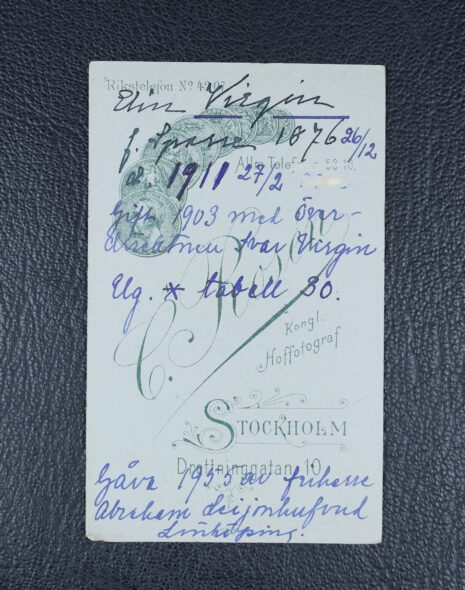 Rikstelefon Nº
Elin Virgin
f. Sparre 1876 26/12
1911 27/2
Allm. Telef. 53 18.
Gift 1903 med Över-
direktören Ivar Virgin
C. Rosén
Elg. * tabell 30.
Kongl.
Hoffotograf
STOCKHOLM
Drottninggatan 10
Gåva 1935 av friherre
Abraham Leijonhufvud
Linköping.